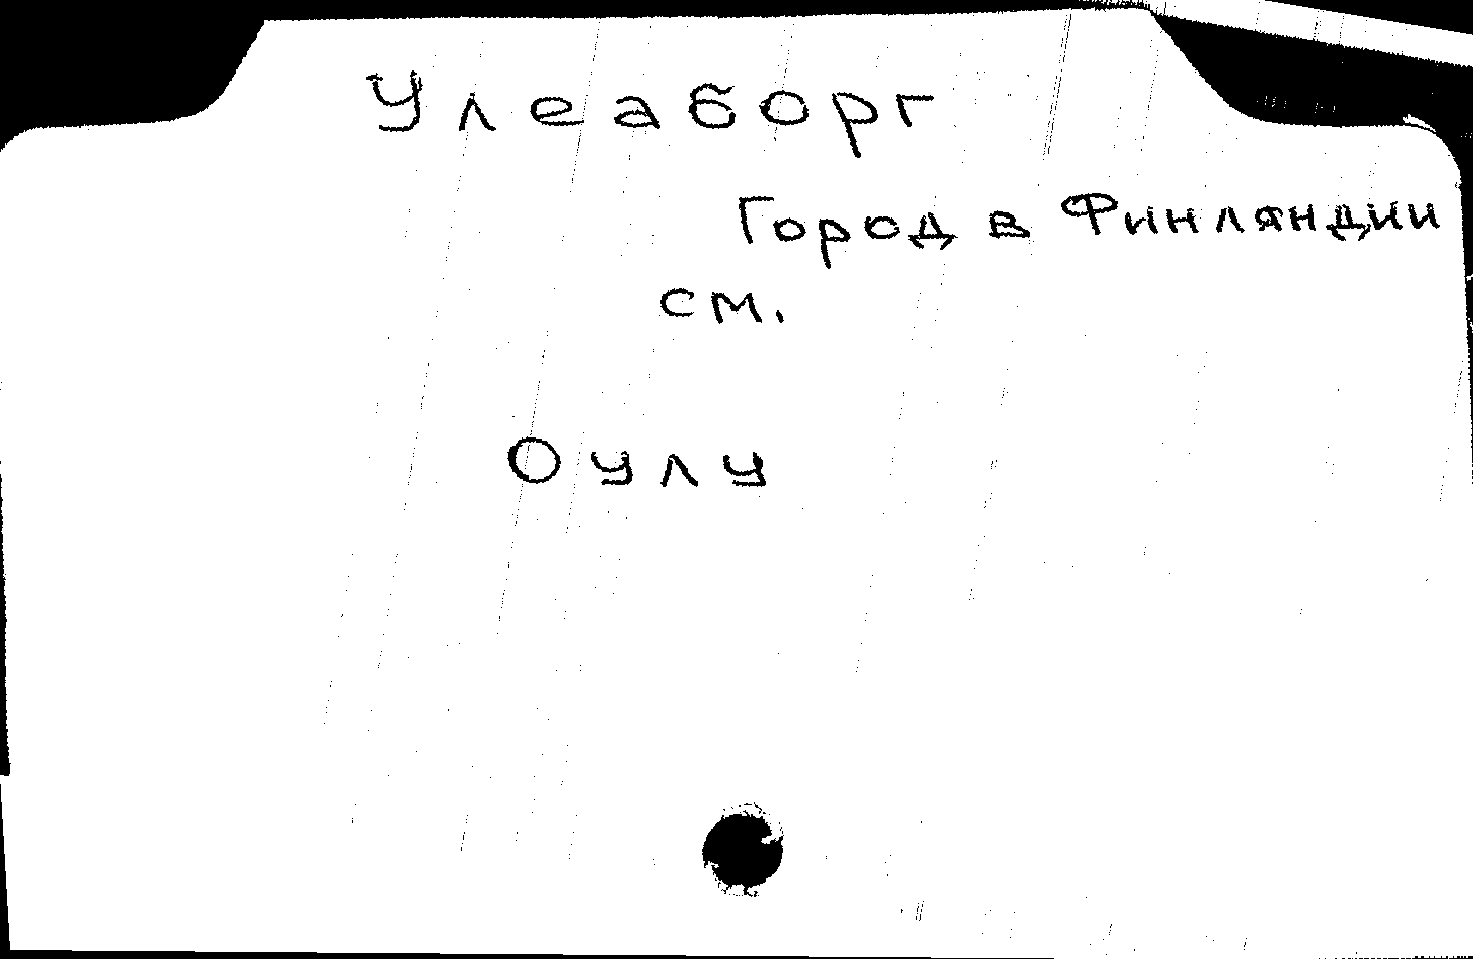 Улеаборг
Город в Финляндии
см.
Оулу